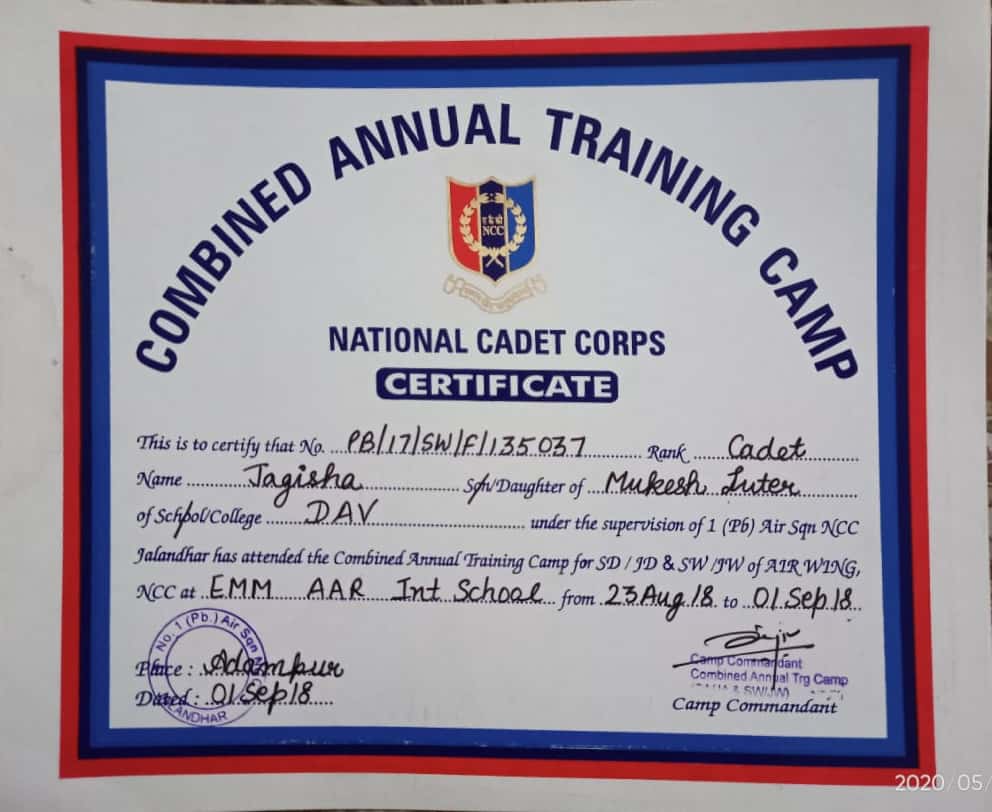 COMBINED ANNUAL TRAINING CAMP
NCC
NATIONAL CADET CORPS
CERTIFICATE
This is to certify that No. PB/17/SW/F/135037 Rank Cadet
Name Jagisha Son/Daughter of Mukesh Luter
of School/College DAV under the supervision of 1 (Pb) Air Sqn NCC
Jalandhar has attended the Combined Annual Training Camp for SD / JD & SW /JW of AIR WING,
NCC at EMM AAR Int School from 23 Aug 18 to 01 Sep 18
No. 1 (Pb.) Air Sqn
Place : Adampur
Dated : 01 Sep 18
Camp Commandant
Combined Annual Trg Camp
& SW/JW)
Camp Commandant
2020/05/